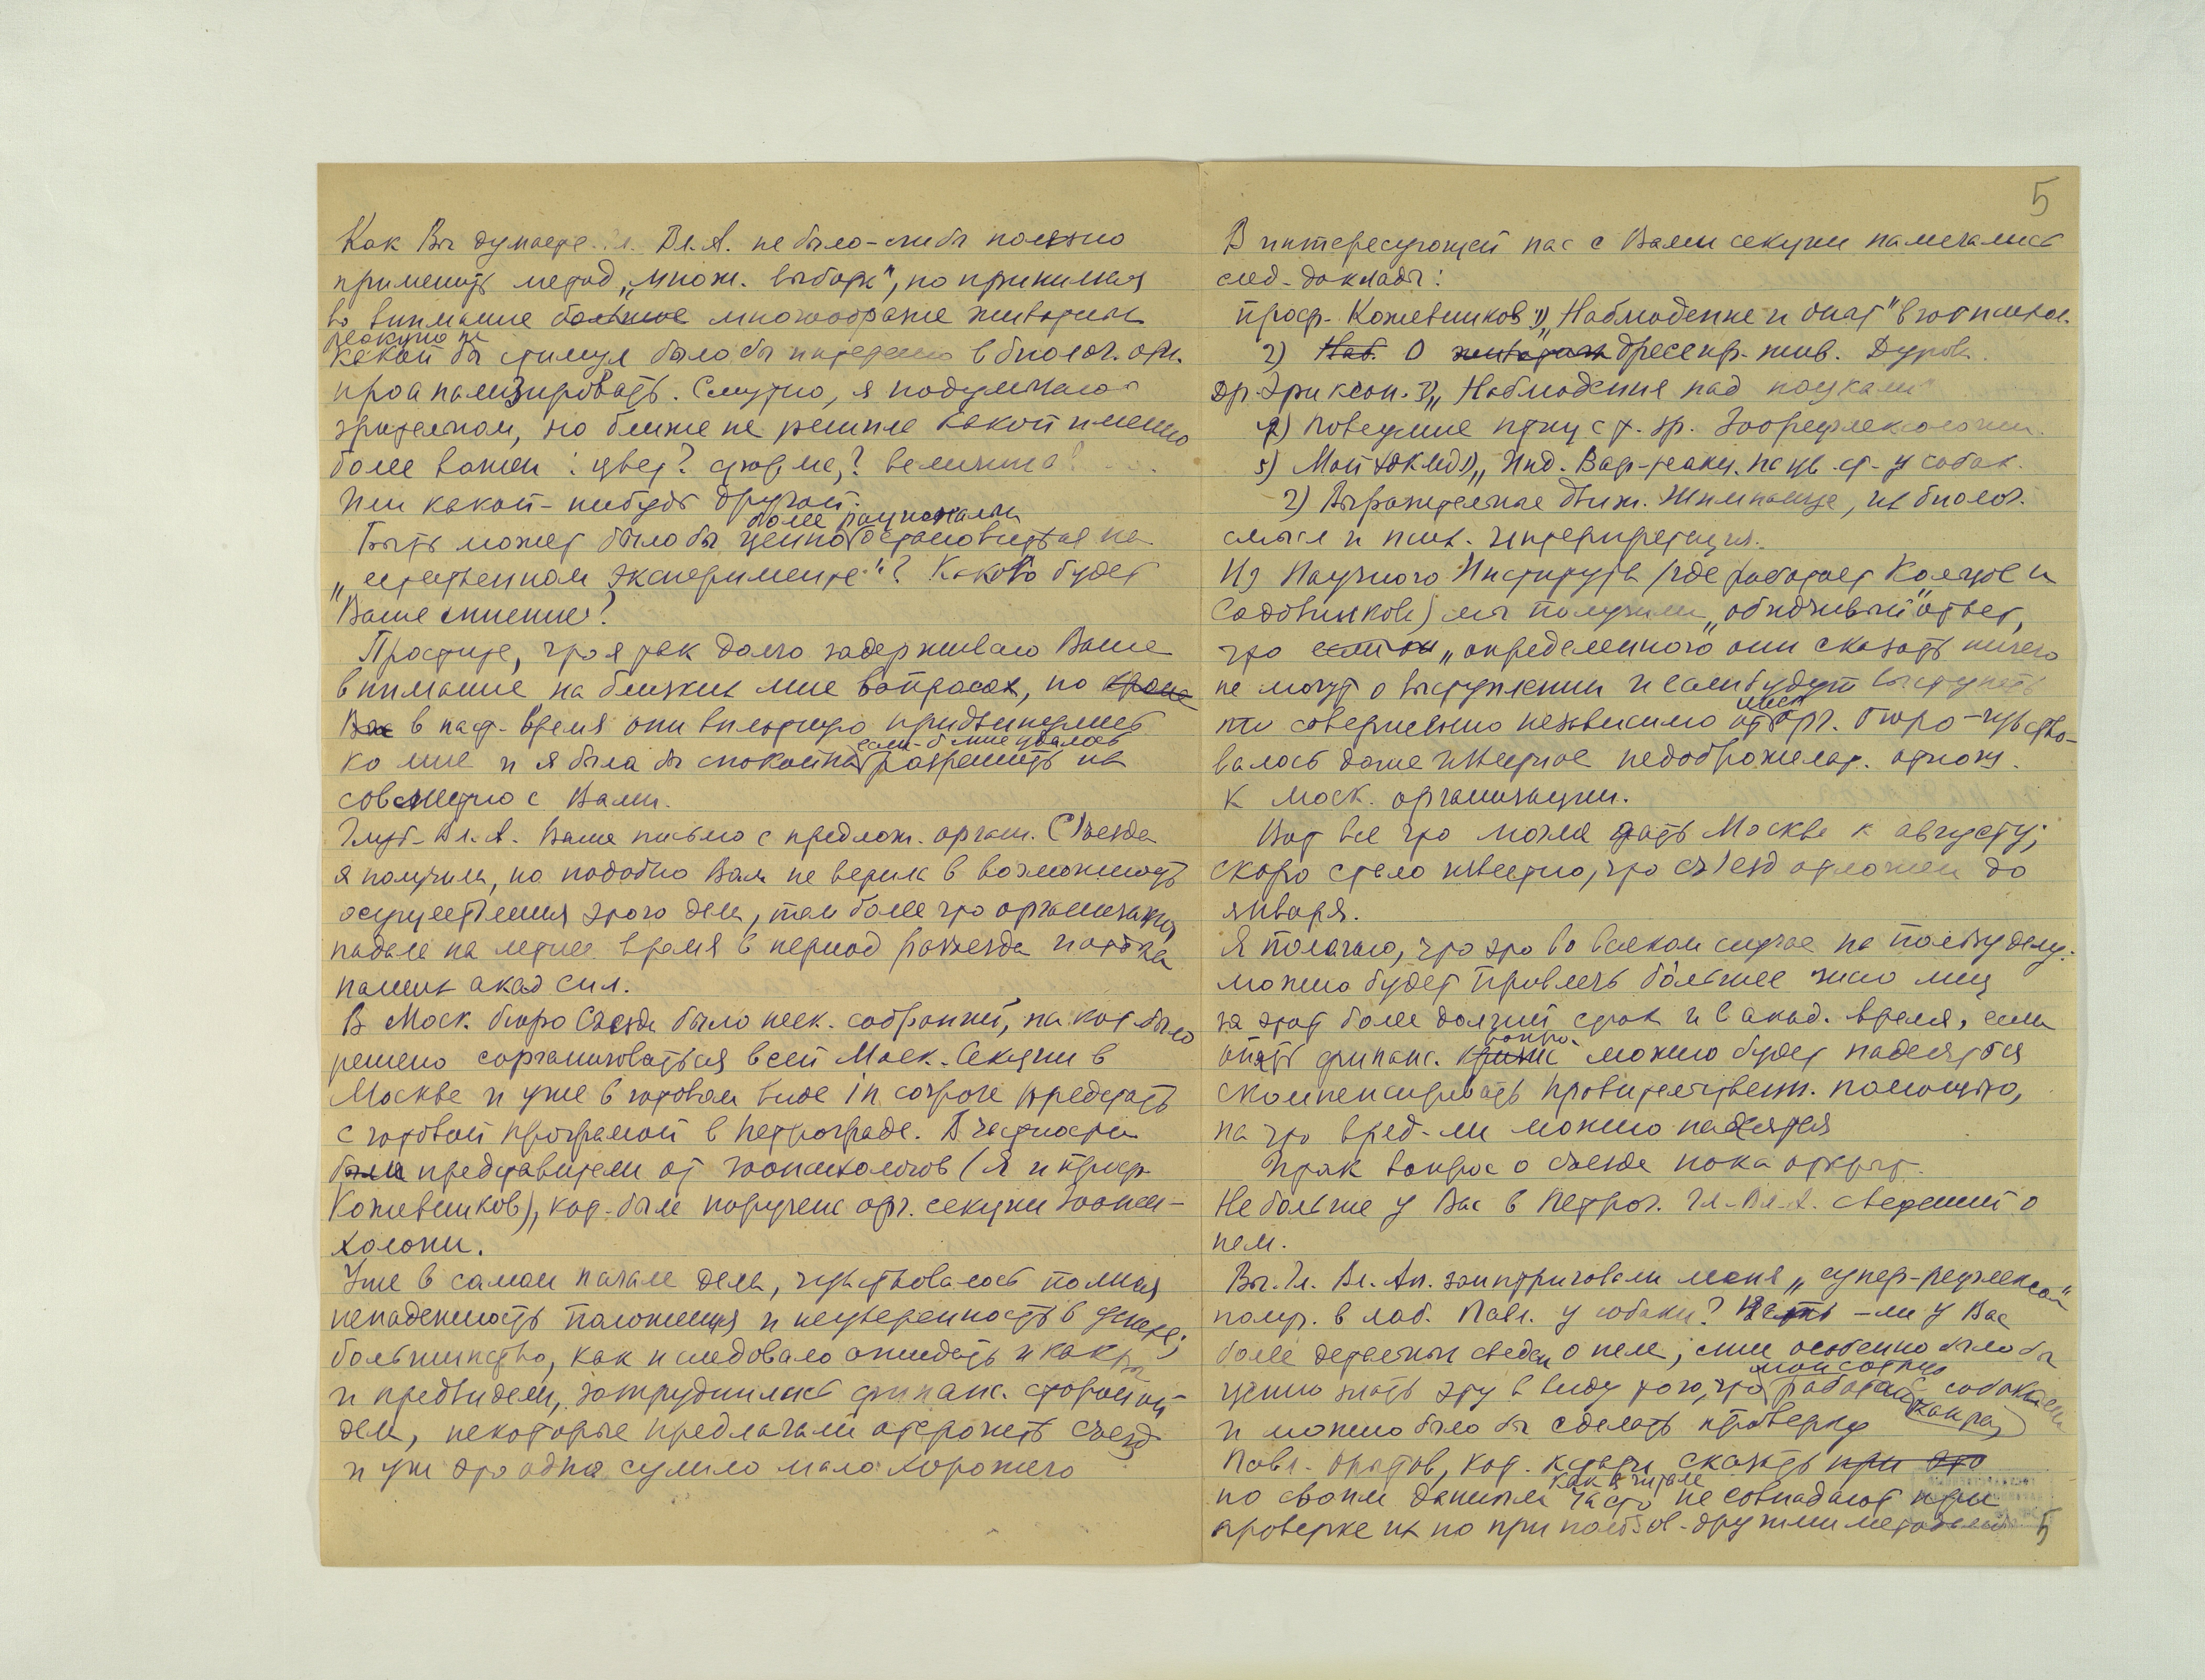 Как Вы думаете Гл. Вл. А. не было-ли бы полезно
применить метод „множ. выбора“, но принимая
во внимание большое многообразие животных
реакцию на
какой бы стимул было бы интересно в биолог. отн.
проанализировать. Смутно, я подумываю о
зрительном, но ближе не решила какой именно
более важен: цвет? форма? величина?
Или какой-нибудь другой.
более рационально
Быть может было бы ценно остановиться на
„естественном эксперименте“? Каково будет
Ваше мнение?
Простите, что я так долго задерживаю Ваше
внимание на близких мне вопросах, но кроме
Вас в наст. время они вплотную придвинулись
если-б мне удалось
ко мне и я была бы спокойна разрешить их
совместно с Вами.
Глуб. Вл. А. Ваше письмо с предлож. орган. Съезда
я получила, но подобно Вам не верила в возможность
осуществления этого дела, тем более что организация
падала на летнее время в период разъезда
наших акад. сил.
В Моск. бюро Съезда было неск. собраний, на кот. было
решено сорганизоваться всей Моск. Секции в
Москве и уже в готовом виде in corpore предстать
с готовой программой в Петрограде. В частности
были представители от зоопсихологов (я и проф.
Кожевников), кот. была поручена орг. секции зоопси-
хологии.
Уже в самом начале дела, чувствовалась полная
ненадежность положения и неуверенность в успехе;
большинство, как и следовало ожидать и как Вы
и предвидели, затруднялись финанс. стороной
дела, некоторые предлагали отсрочить съезд
и уж это одно сулило мало хорошего
5
В интересующей нас с Вами секции намечались
след. доклады:
проф. Кожевников 1) „Наблюдение и опыт“ в зоопсихол.
2) Наб. О животных дрессир. жив. Дурова
Др. Эриксон. 3) „Наблюдения над пауками
4) Поведение птиц с т. зр. Зоорефлексологии.
5) Мой доклад 1) „Инд. Вар. реакц. на цв. ст. у собак.
2) Выразительные движ. Шимпанзе, их биолог.
смысл и псих. интерпретация.
Из Научного Института (где работает Кольцов и
Садовникова) мы получили „обидчивый“ ответ,
что если они „определенного они сказать ничего
не могут о выступлении и если будут выступать
то совершенно независимо от орг. бюро – чувство-
валось даже известное недоброжелат. отнош.
к моск. организации.
Вот все что могла дать Москва к августу;
скоро стало известно, что съезд отложен до
января.
Я полагаю, что это во всяком случае на пользу делу:
можно будет привлечь большее число лиц
за этот более долгий срок и в акад. время, если
вопрос
опять финанс. кризис можно будет надеяться
скомпенсировать правительствен. помощью,
на что вряд-ли можно надеяться
Итак вопрос о съезде пока открыт.
Не больше у Вас в Петрог. Гл. Вл. А. сведений о
нем.
Вы Гл. Вл. Ал. заинтриговали меня „супер-рефлексом“
получ. в лаб. Павл. у собаки? Нет-ли у Вас
более детальных сведен о нем; мне особенно было бы
ценно знать эту в виду того, что работаю с собаками
и можно было бы сделать проверку
Павл. опытов, кот. кстати сказать при это
как я читала
по своим данным часто не совпадают при
проверке их но при пользов. другими методами 5